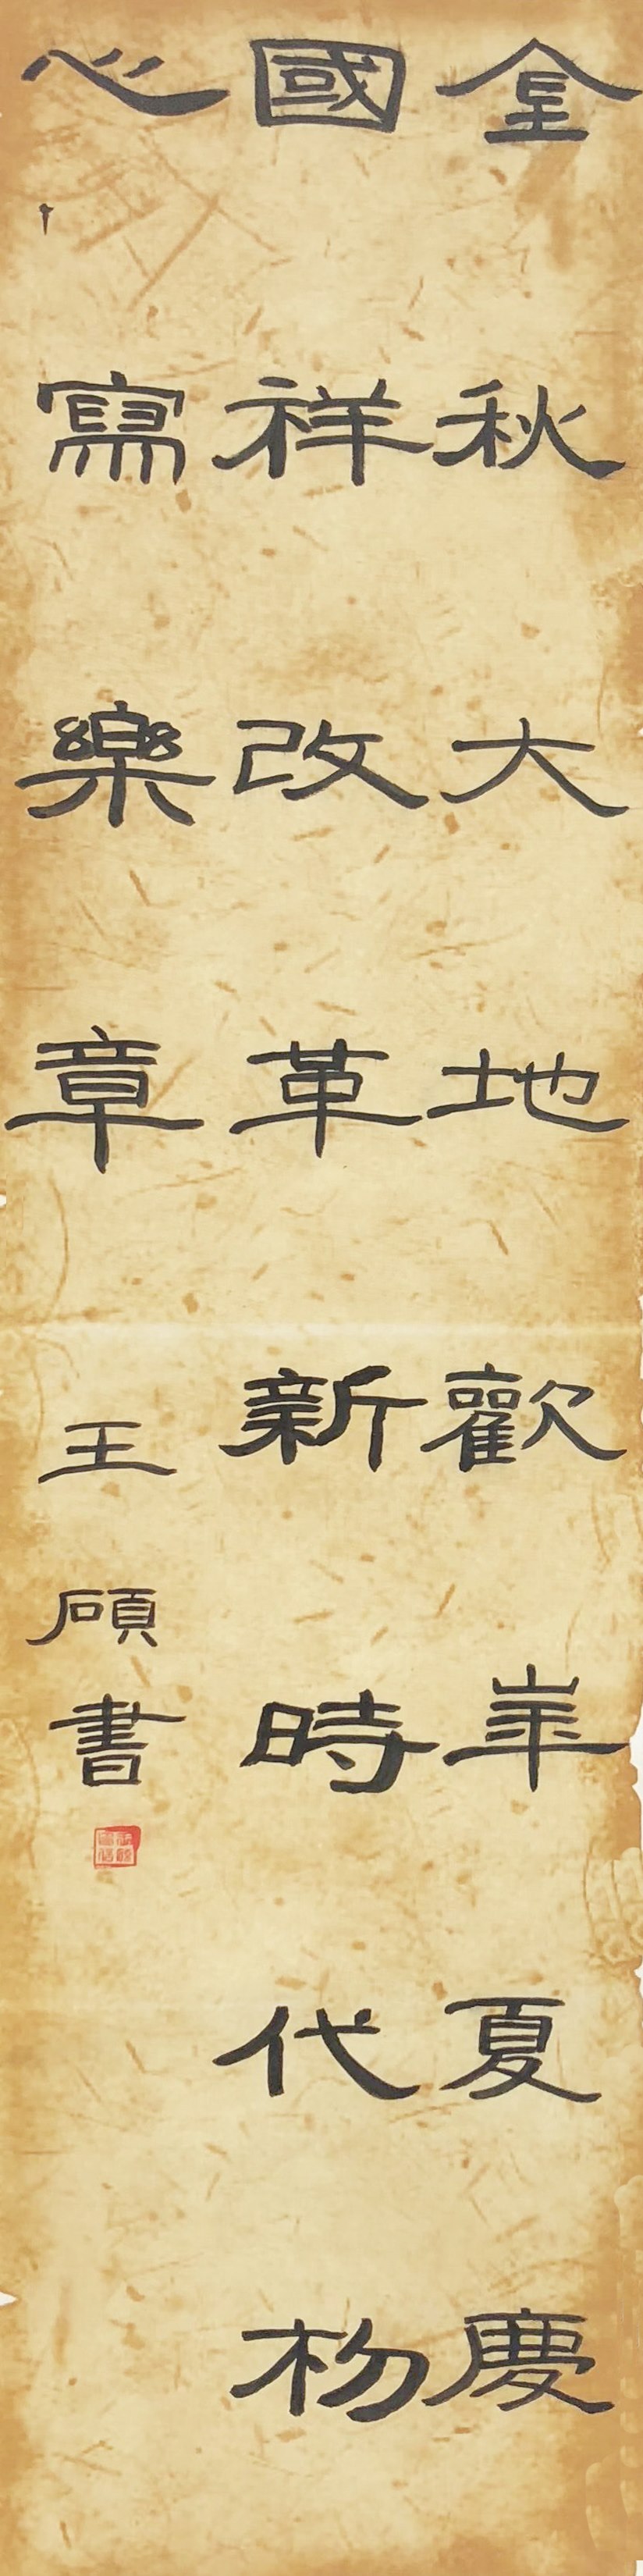 金秋大地歡華夏慶
國祥改革新時代初
心寫樂章
王碩書